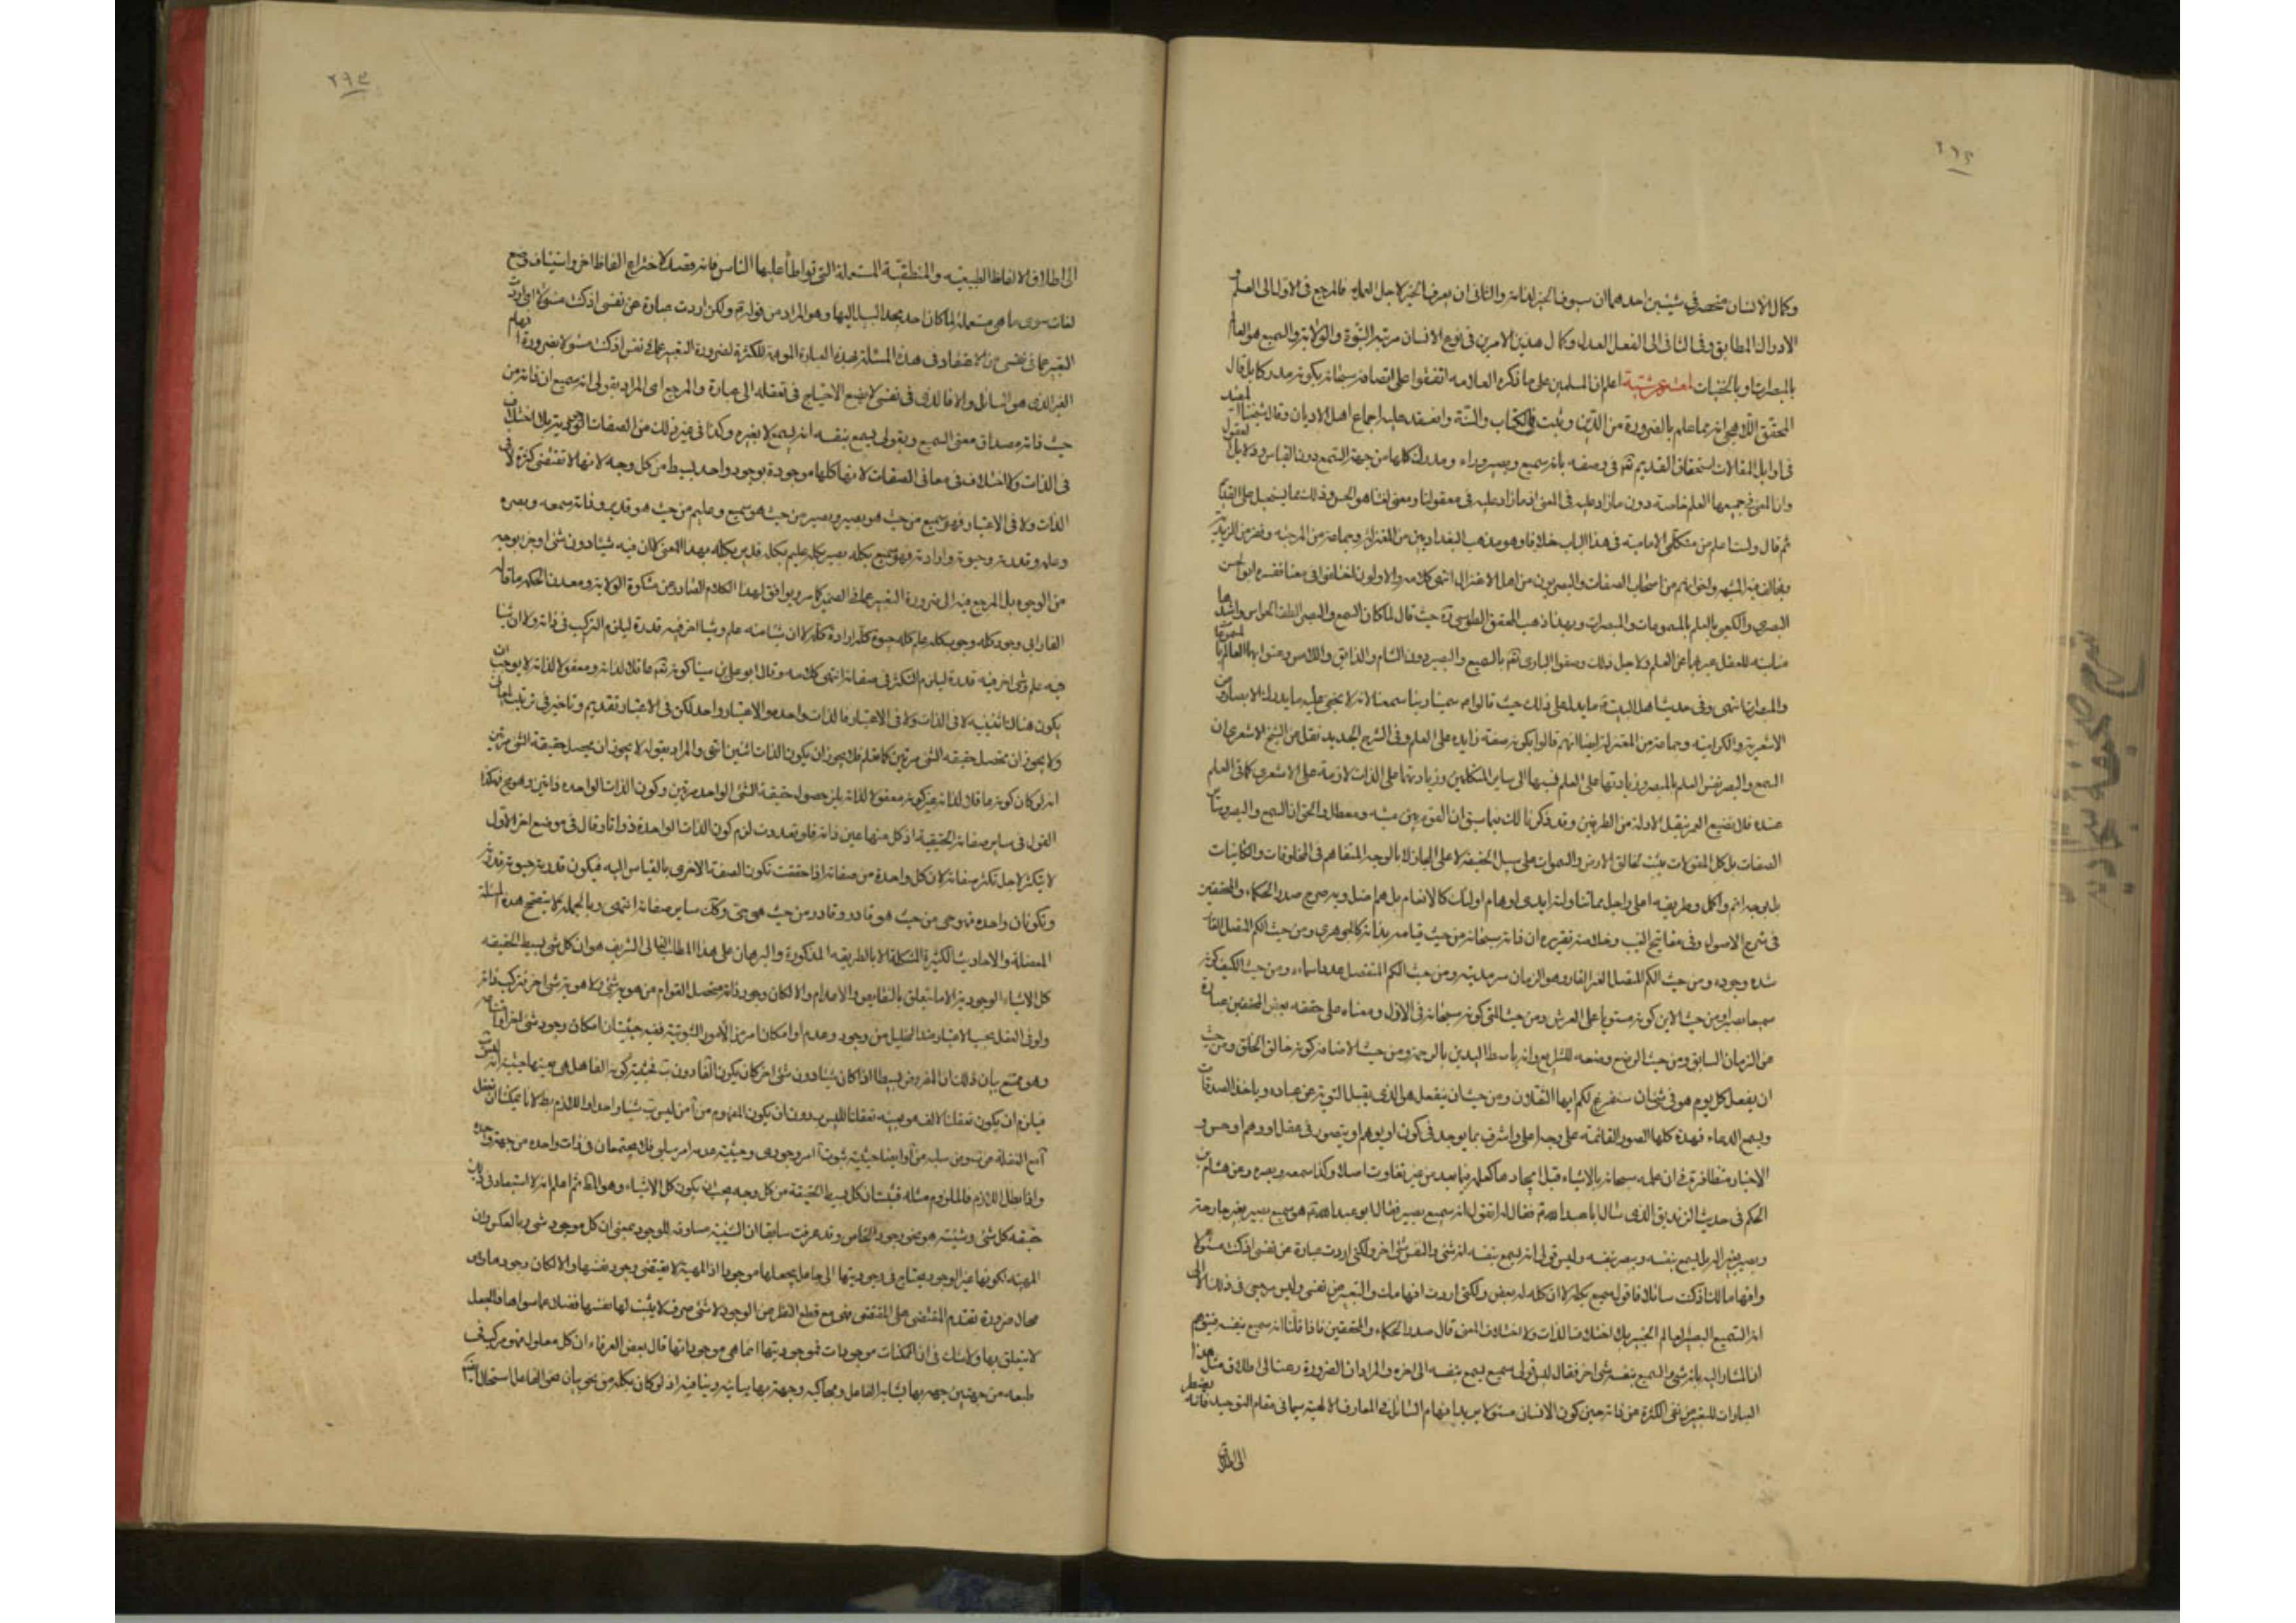 وكمال الانسان منحصر في شيئين احدهما ان يعرف الخير لذاته والثاني ان يعرف الخير لاجل العمل به فالمرجع في الاول الى العلم و
الادراك المطابق وفي الثاني الى الفعل العدل وكمال هذين الامرين في نوع الانسان مرتبة النبوة والولاية والسميع هو العالم
بالمبصرات او بالخفيات اعلم ان المسلمين على ما ذكره العلامه اتفقوا على اتصافه سبحانه بكونه مدركا بل قال
المحقق اللاهيجي انه مما علم بالضرورة من الدين وثبت في الكتاب والسنة وانعقد عليه اجماع اهل الاديان وقال شيخنا المفيد
في اوايل المقالات استحقاق القديم تعالى في وصفه بانه سميع وبصير وراء ومدرك كلها من جهة السمع دون القياس ودلايل العقول
وان المعنى في جميعها العلم خاصة دون ما زاد عليه في المعنى اذ ما زاد عليه في معقولنا ومعنى لغتنا هو الحس وذلك مما يستحيل على القديم
ثم قال ولست اعلم من متكلمي الامامية في هذا الباب خلافا وهو مذهب البغداديين من المعتزلة وجماعة من المرجئه ونفر من الزيديه
ويخالف فيه المشبهه واخوانهم من اصحاب الصفات والبصريون من اهل الاعتزال انتهى كلامه والاولون اختلفوا في معناه ففسره ابو الحسن
البصري والكعبي بالعلم بالمسموعات والمبصرات وبهذا ذهب المحقق الطوسي ره حيث قال لما كان السمع والبصر الطف الحواس واشدها
مناسبة للعقل عبر بهما عن العلم ولاجل ذلك وصفوا الباري تعالى بالسميع والبصير دون الشام والذائق واللامس وعنوا بهما العالم بالمسموعات
والمبصرات انتهى وفي حديث اهل البيت ما يدل على ذلك حيث قالوا سمينا ربنا سميعا لانه لا يخفى عليه ما يدرك بالابصار ومن
الاشعرية والكرامية وجماعة من المعتزلة ايضا انهم قالوا بكونه صفة زايدة على العلم وفي الشرح الجديد نقل عن الشيخ الاشعري ان
السمع والبصر نفس العلم بالمبصر وزيادتها على العلم نسبها الى ساير المتكلمين وزيادتهما على الذات لازمة على الاشعري كما في العلم
عنده فلا نضيع العمر بنقل الادلة من الطرفين وقد ذكرنا لك فيما سبق ان القوم بين مشبه ومعطل والحق ان السمع والبصر وساير
الصفات بل كل المقولات يثبت لخالق الارض والسموات على سبيل الحقيقة لا على المجاز لا بالوجه المتفاهم في المخلوقات والكائنات
بل بوجه اتم واكمل وطريقه اعلى واجل مما تناولته ايدي اوهام اولئك كالانعام بل هم اضل وبه صرح صدر الحكماء والمحققين
في شرح الاصول وفي مفاتيح الغيب وخلاصة تقريره ان ذاته سبحانه من حيث قيامه بذاته كالجوهري ومن حيث الكم المتصل القار
شدة وجوده ومن حيث الكم المتصل الغير القار وهو الزمان سرمديته ومن حيث الكم المنفصل عدد اسماءه ومن حيث الكيف كونه
سميعا بصيرا ومن حيث الاين كونه مستويا على العرش ومن حيث المتى كونه سبحانه في الازل ومعناه على حققه بعض المحققين عبارة
عن الزمان السابق ومن حيث الوضع وضعه للشرايع وانه باسط اليدين بالرحمة ومن حيث الاضافة كونه خالق الخلق ومن حيث
ان يفعل كل يوم هو في شان سنفرغ لكم ايها الثقلان ومن حيث ان ينفعل هو الذي يقبل التوبة عن عباده وياخذ الصدقات
ويسمع الدعاء فهذه كلها الصور القائمة على وجه اعلى واشرف بما يوجد في كون او يوهم او يتصور في عقل او وهم او حس و
الاخبار متظافرة في ان علمه سبحانه بالاشياء قبل ايجادها كعلمه بها بعد من غير تفاوت اصلا وكذا سمعه وبصره وعن هشام بن
الحكم في حديث الزنديق الذي سال ابا عبدالله فقال له اتقول انه سميع بصير فقال ابو عبدالله هو سميع بصير بغير جارحة
وبصير بغير اله بل يسمع بنفسه ويبصر بنفسه وليس قولي انه يسمع بنفسه انه شئ والنفس شئ اخر ولكني اردت عبارة عن نفسي اذ كنت مسئولا
وافهاما لك اذ كنت سائلا فاقول سميع بكله لا ان كله له بعض ولكني اردت افهامك والتعبير عن نفسي وليس مرجعي في ذلك الا الى
انه السميع البصير العالم الخبير بلا اختلاف الذات ولا اختلاف المعنى قال صدر الحكماء والمحققين فاذا قلنا انه سميع بنفسه فيتوهم
ان المشار اليه بانه شئ والسميع بنفسه شئ اخر فقال ليس قولي سميع يسمع بنفسه الى اخره والمراد ان الضرورة دعتنا الى اطلاق مثل هذا
العبارات للتعبير عن نفي الكثرة عن ذاته حين كون الانسان مسئولا يريد افهام السائل في المعارف الالهية سيما في مقام التوحيد فانه يضطر
الى اطلاق
الى اطلاق الالفاظ الطبيعيه والمنطقية المستعملة التي تواطأ عليها الناس فانه وقصد لاختراع الفاظ اخر واستيناف وضع
لغات سوى ما هي مستعملة لما كان احد يجد السبيل اليها وهو المراد من قوله ولكن اردت عبارة عن نفسي اذ كنت مسئولا اي اردت
التعبير عما في نفسي من الاعتقاد في هذه المسئلة بهذه العبارة الموهمة للكثرة لضرورة التعبير عما في نفس اذ كنت مسئولا لضرورة افهام
الغير الذي هو السائل والا فالذي في نفسي لا يقع الاحتياج في تعقله الى عبارة والمرجع اي المراد بقولي انه سميع ان ذاته من
حيث ذاته مصداق معنى السميع وبقولي يسمع بنفسه انه يسمع لا بغيره وكذا في غير ذلك من الصفات الوجودية بلا اختلاف
في الذات ولا اختلاف في معاني الصفات لانها كلها موجودة بوجود واحد بسيط من كل وجه لانها لا تقتضي كثرة لا في
الذات ولا في الاعتبار فهو سميع من حيث هو بصير وبصير من حيث هو سميع وعليم من حيث هو قدير وذاته سمعه وبصره
وعلمه وقدرته وحيوته وارادته فهو سميع بكله بصير بكله عليم بكله قدير بكله بهذا المعنى لا ان فيه شيئا دون شئ اوجزء بوجه
من الوجوه بل المرجع فيه الى ضرورة التعبير عما في الضمير كما مر ويوافق لهذا الكلام الصادر عن مشكوة الولاية ومعدن الحكمه ما قاله
الفارابي وجود كله وجوب كله علم كله حيوة كله ارادة كله لا ان شيئا منه علم وشيئا اخر فيه قدرة ليلزم التركيب في ذاته ولا ان شيئا
فيه علم وشئ اخر فيه قدرة ليلزم التكثر في صفاته انتهى كلامه وقال ابو علي بن سينا كونه تعالى عاقلا لذاته ومعقولا لذاته لا يوجب ان
يكون هناك اثنينيه لا في الذات ولا في الاعتبار فالذات واحده والاعتبار واحد لكن في الاعتبار تقديم وتاخير في ترتيب المعاني
ولا يجوز ان تحصل حقيقه الشئ مرتين كما تعلم فلا يجوز ان يكون الذات اثنين انتهى والمراد بقوله لا يجوز ان يحصل حقيقة الشئ مرتين
انه لو كان كونه عاقلا لذاته غير كونه معقولا لذاته يلزم حصول حقيقة الشئ الواحد مرتين وكون الذات الواحده ذاتين وهو مح وهكذا
القول في ساير صفاته الحقيقية اذ كل منها عين ذاته فلو تعددت لزم كون الذات الواحدة ذواتا وقال في موضع اخر الاول
لا يتكثر لاجل تكثر صفاته لان كل واحدة من صفاته اذا حققت تكون الصفة الاخرى بالقياس اليه فيكون قدرته حيوته وحيوته قدرته
وتكونان واحده فهو حي من حيث هو قادر وقادر من حيث هو حي وكذلك ساير صفاته انتهى وبالجملة لا يتضح هذه المسئلة
المعضلة والاحاديث الكثيرة المشكلة الا بالطريقه المذكورة والبرهان على هذا المطلب العالي الشريف هو ان كل شئ بسيط الحقيقه
كل الاشياء الوجودية الا ما يتعلق بالنقايص والاعدام والا لكان وجود ذاته متحصل القوام من هوية شئ ولا هوية شئ اخر فتركب ذاته
ولو في العقل بحسب الاعتبار
وهو ممتنع بيان ذلك ان المفروض بسيطا اذا كان شيئا دون شئ اخر كان يكون الفا دون ب فحيثية كونه الفا هل هي بعينها حيثية انه ليس ب
فيلزم ان يكون تعقلنا الالف هو بعينه تعقلنا لليس ب
واذا بطل اللازم فالملزوم مثله فثبت ان كل بسيط الحقيقة من كل وجه يجب ان يكون كل الاشياء وهو المط ثم اعلم انه لا استبعاد في ذلك
حقيقه كل شئ وشيئيته هو نحو وجوده الخاص وقد عرفت سابقا ان الشيئية مساوقه للوجود بمعنى ان كل موجود شئ وبالعكس وان
المهيه لكونها غير الوجود يحتاج في وجوديتها الى جاعل يجعلها موجودا اذ المهية لا يقتضي وجود نفسها والا لكان وجودها
محال ضرورة تقدم المقتضي على المقتضى فهي مع قطع النظر عن الوجود لا شئ صرف لا يثبت لها نفسها فضلا عما سواها فالجعل
لا يتعلق بها ولا شك في ان الممكنات موجودات فموجوديتها انما هي موجوداتها قال بعض العرفاء ان كل معلول فهو مركب في
طبعه من جهتين جهة بها يشابه الفاعل ويحاكيه وجهة بها يباينه وينافيه اذ لو كان بكله من نحو